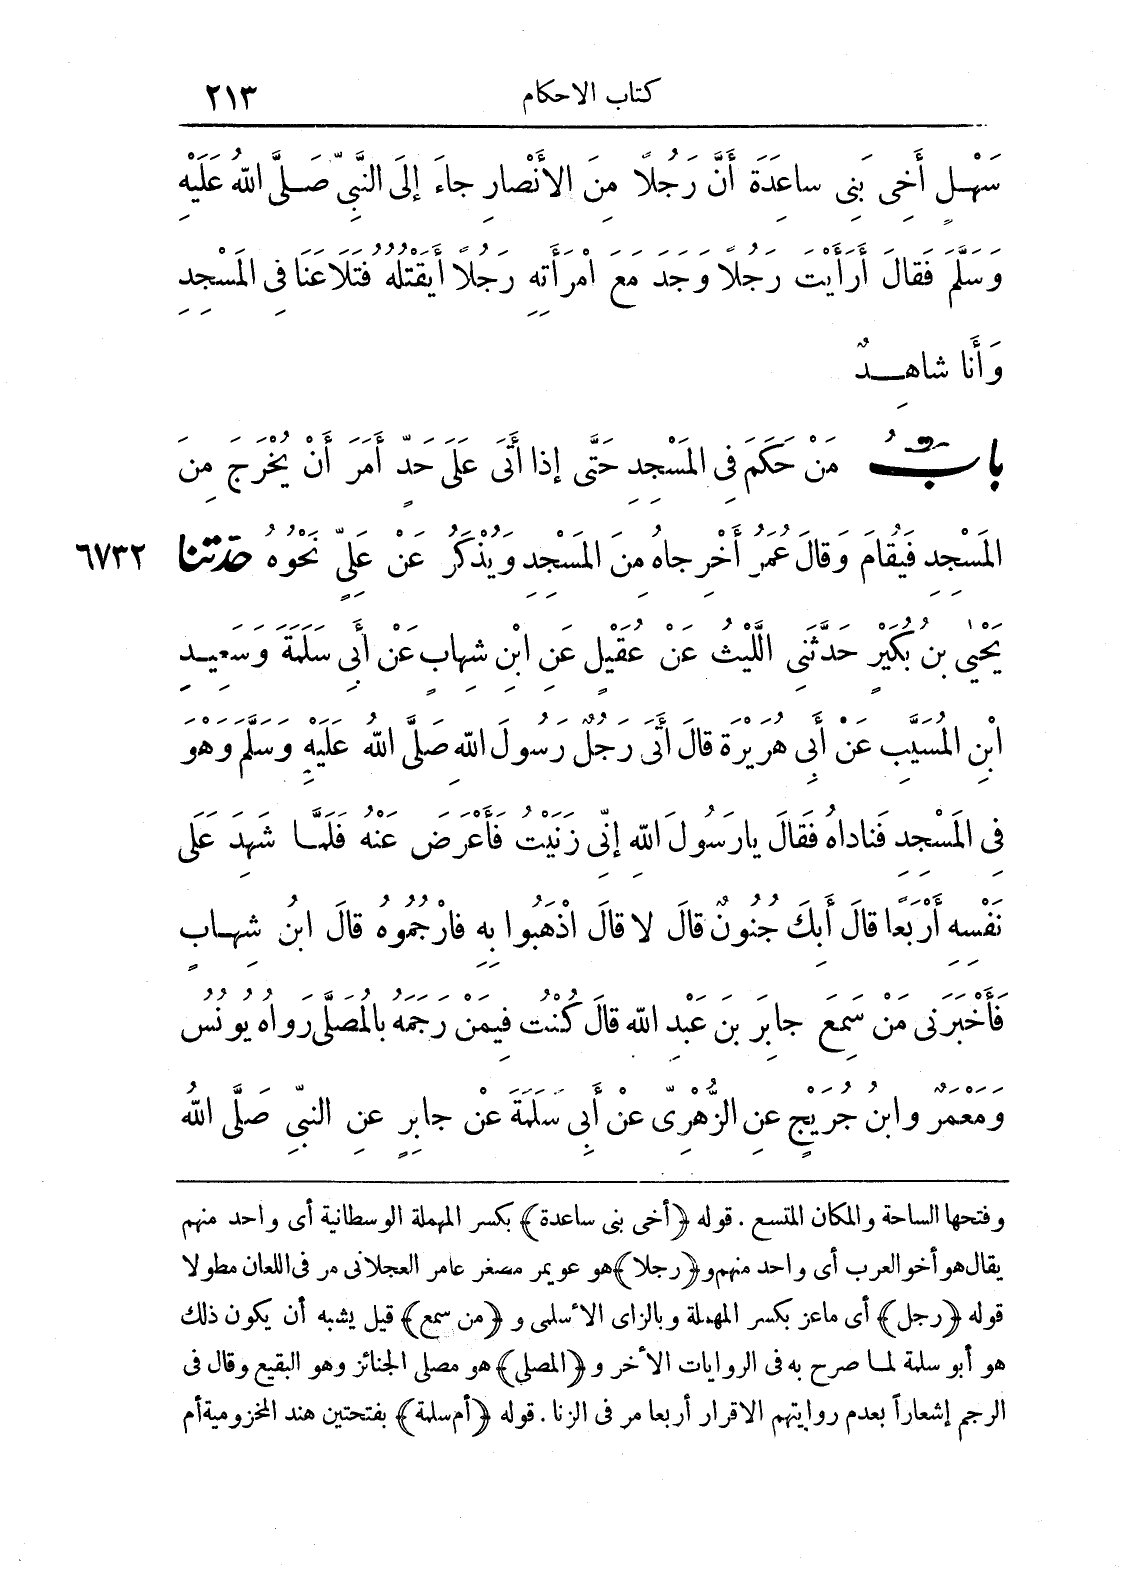 كتاب الاحكام ٢١٣
سَهْلٍ أَخِى بَنِى ساعِدَةَ أَنَّ رَجُلًا مِنَ الأَنْصارِ جاءَ إلَى النَّبِىِّ صَلَّى اللهُ عَلَيْهِ
وَسَلَّمَ فَقالَ أَرَأَيْتَ رَجُلًا وَجَدَ مَعَ امْرَأَتِهِ رَجُلًا أَيَقْتُلُهُ فَتَلَاعَنَا فِى المَسْجِدِ
وَأَنا شاهِدٌ
بابُ مَنْ حَكَمَ فِى المَسْجِدِ حَتَّى إذا أَتَى عَلَى حَدٍّ أَمَرَ أَنْ يُخْرَجَ مِنَ
المَسْجِدِ فَيُقامَ وَقالَ عُمَرُ أَخْرِجاهُ مِنَ المَسْجِدِ وَيُذْكَرُ عَنْ عَلِىٍّ نَحْوُهُ حَدَّثَنا ٦٧٣٢
يَحْيٰى بنُ بُكَيْرٍ حَدَّثَنِى اللَّيْثُ عَنْ عُقَيْلٍ عَنِ ابْنِ شِهابٍ عَنْ أَبِى سَلَمَةَ وَسَعِيدِ
ابْنِ المُسَيَّبِ عَنْ أَبِى هُرَيْرَةَ قالَ أَتَى رَجُلٌ رَسُولَ اللهِ صَلَّى اللهُ عَلَيْهِ وَسَلَّمَ وَهْوَ
فِى المَسْجِدِ فَناداهُ فَقَالَ يارَسُولَ اللهِ إنِّى زَنَيْتُ فَأَعْرَضَ عَنْهُ فَلَمَّا شَهِدَ عَلَى
نَفْسِهِ أَرْبَعًا قالَ أَبِكَ جُنُونٌ قالَ لا قالَ اذْهَبُوا بِهِ فارْجُمُوهُ قالَ ابنُ شِهابٍ
فَأَخْبَرَنِى مَنْ سَمِعَ جابِرَ بنَ عَبْدِ اللهِ قالَ كُنْتُ فِيمَنْ رَجَمَهُ بالمُصَلَّى رَواهُ يُونُسُ
وَمَعْمَرٌ وابنُ جُرَيْجٍ عنِ الزُّهْرِىِّ عنْ أَبِى سَلَمَةَ عنْ جابِرٍ عنِ النبىِّ صَلَّى اللهُ
وفتحها الساحة والمكان المتسع . قوله ﴿أخى بنى ساعدة﴾ بكسر المهملة الوسطانية أى واحد منهم
يقال هو أخو العرب أى واحد منهم و﴿رجلا﴾ هو عويمر مصغر عامر العجلانى مر فى اللعان مطولا
قوله ﴿رجل﴾ أى ماعز بكسر المهملة وبالزاى الأسلمى و ﴿من سمع﴾ قيل يشبه أن يكون ذلك
هو أبو سلمة لما صرح به فى الروايات الأخر و ﴿المصلى﴾ هو مصلى الجنائز وهو البقيع وقال فى
الرجم إشعاراً بعدم روايتهم الاقرار أربعا مر فى الزنا . قوله ﴿أم سلمة﴾ بفتحتين هند المخزومية أم